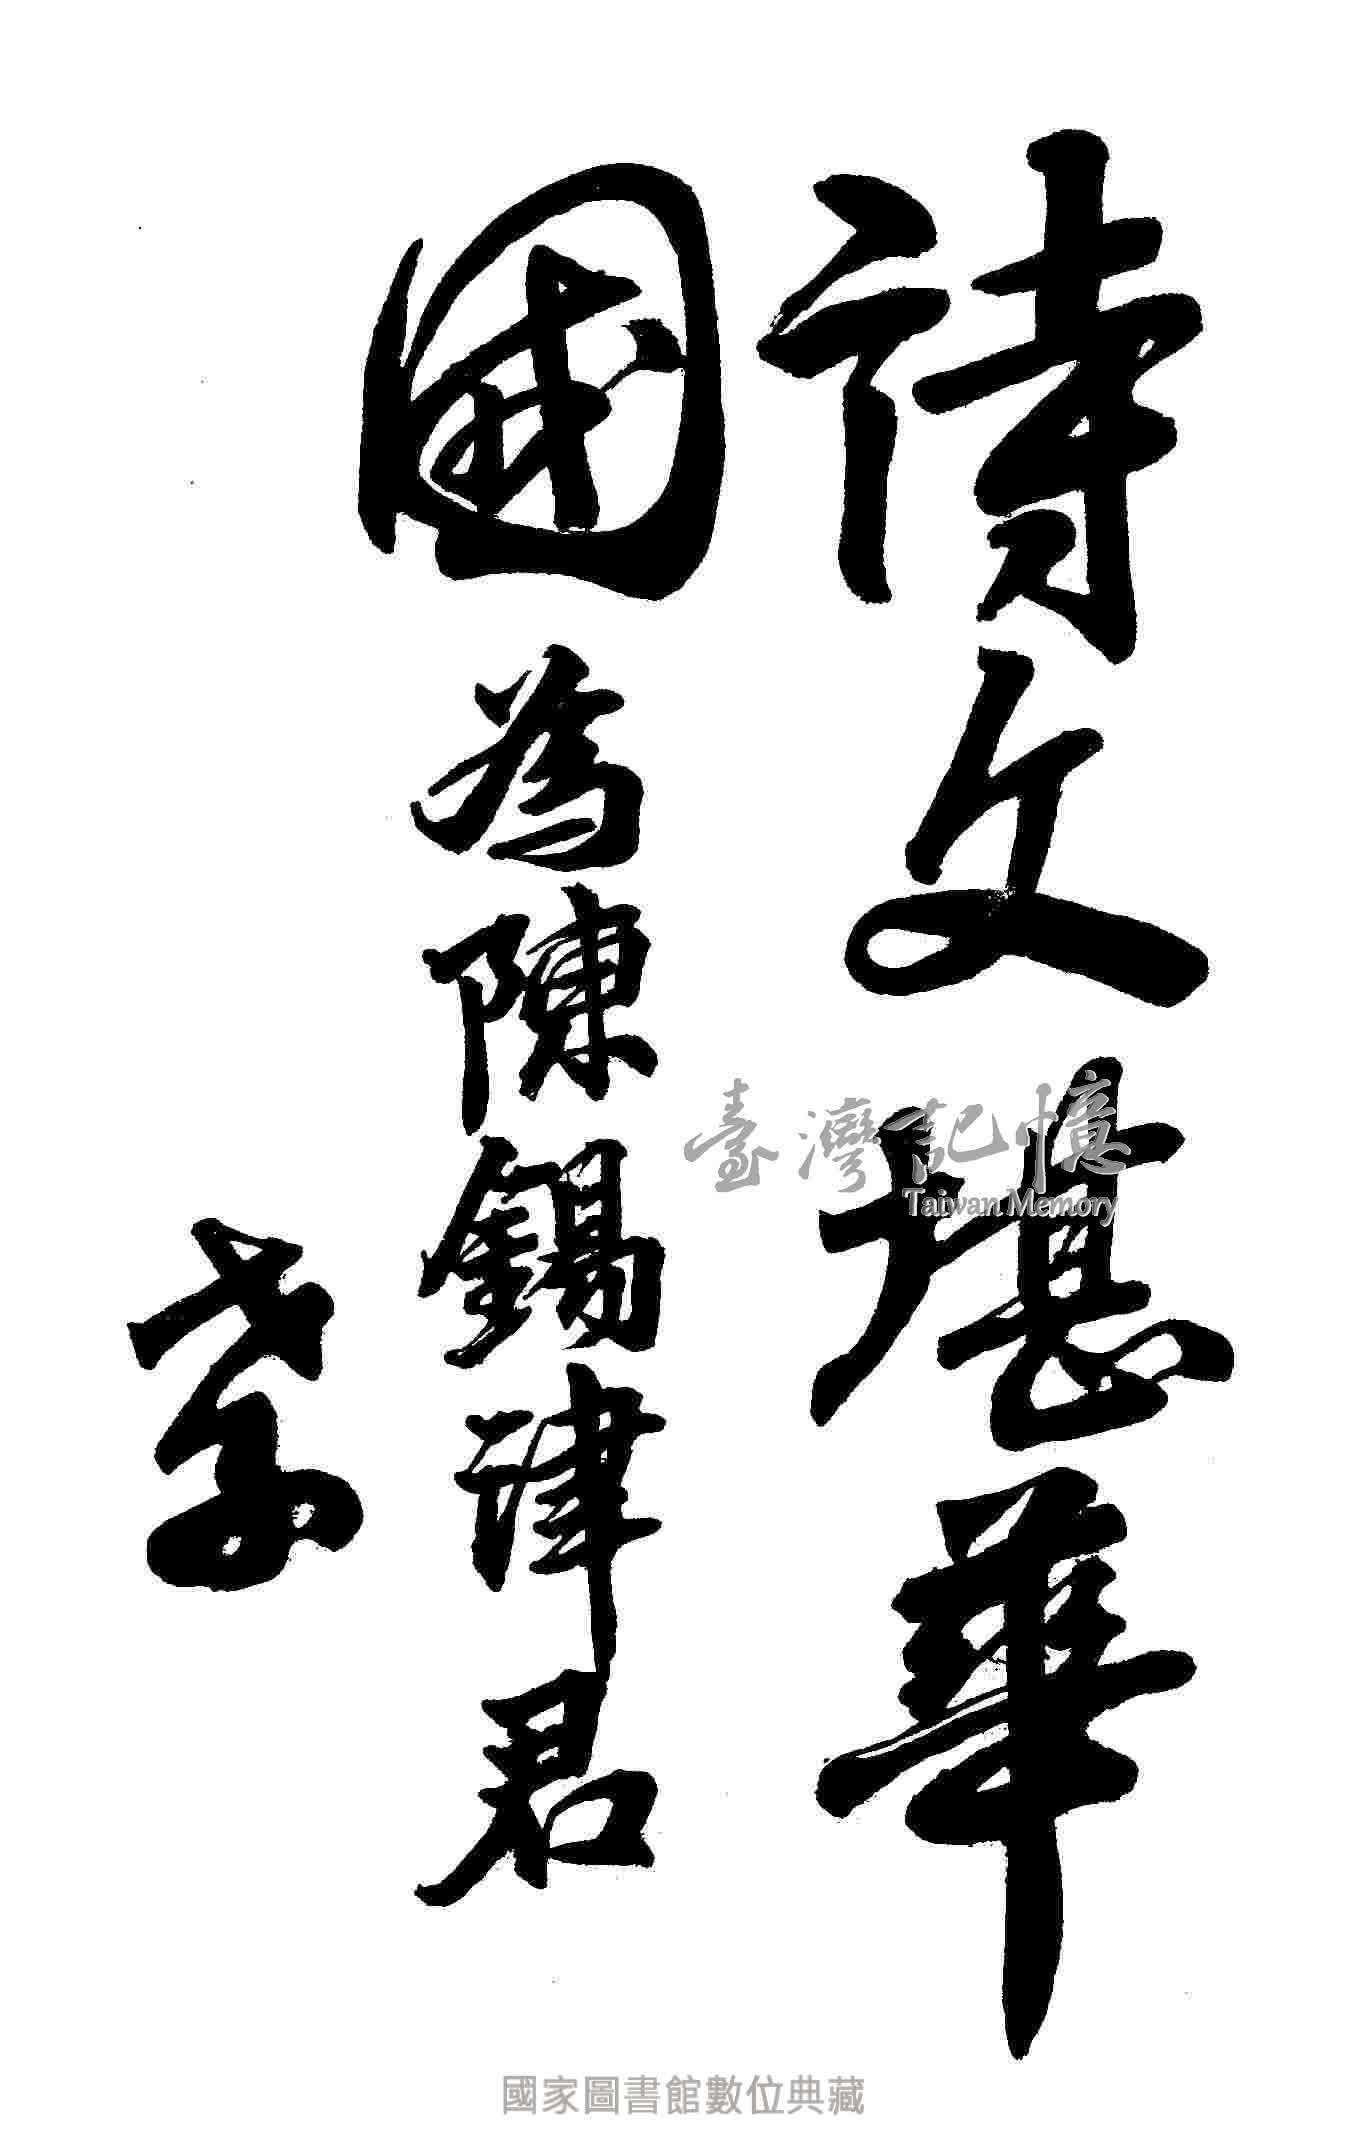 詩文堪華
國為陳錫津君
臺灣記憶
Taiwan Memory
國家圖書館數位典藏